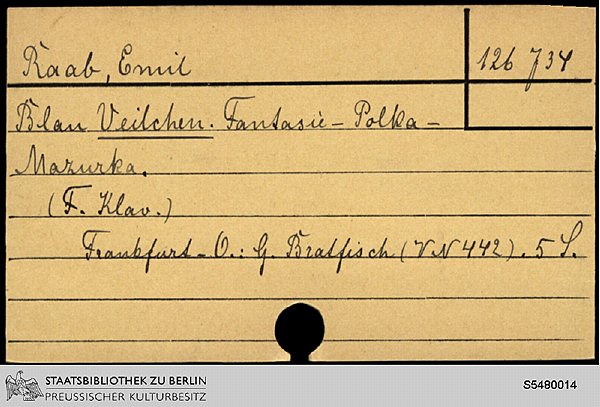 Raab, Emil
126 734
Blau Veilchen. Fantasie-Polka-
Mazurka.
(F. Klav.)
Frankfurt-O.: G. Bratfisch (VN 442). 5 S.
STAATSBIBLIOTHEK ZU BERLIN
PREUSSISCHER KULTURBESITZ
S5480014